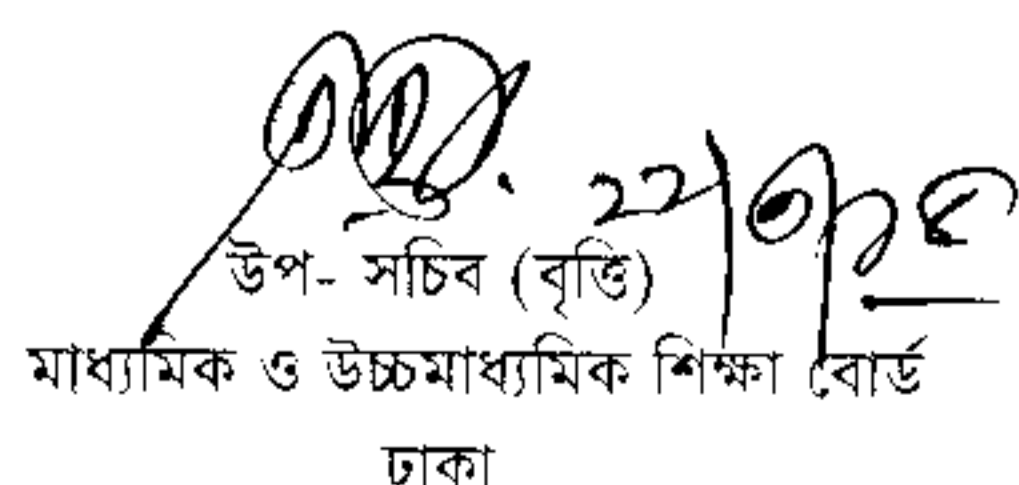 উপ- সচিব (বৃত্তি)
মাধ্যমিক ও উচ্চমাধ্যমিক শিক্ষা বোর্ড
ঢাকা